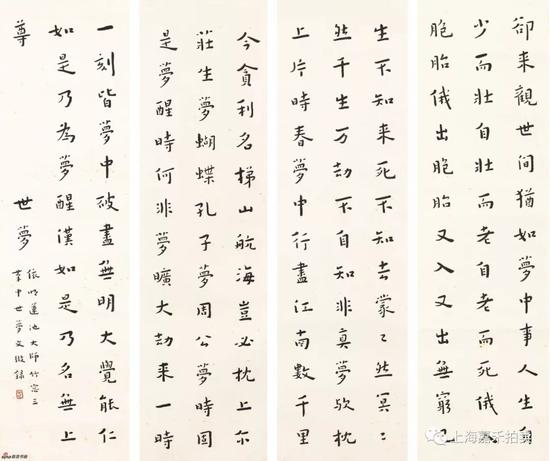 卻来觀世間猶如夢中事人生自
少而壯自壯而老自老而死俄入
胞胎俄出胞胎又入又出無窮已
生不知来死不知去蒙〻然冥〻
然千生万劫不自知非真夢欤枕
上片時春夢中行盡江南數千里
今貪利名梯山航海豈必枕上尔
莊生夢蝴蝶孔子夢周公夢時固
是夢醒時何非夢曠大劫来一時
一刻皆夢中破盡無明大覺能仁
如是乃為夢醒漢如是乃名無上
尊 世夢
依明蓮池大師竹窓三
筆中世夢文敬録
上海嘉禾拍卖